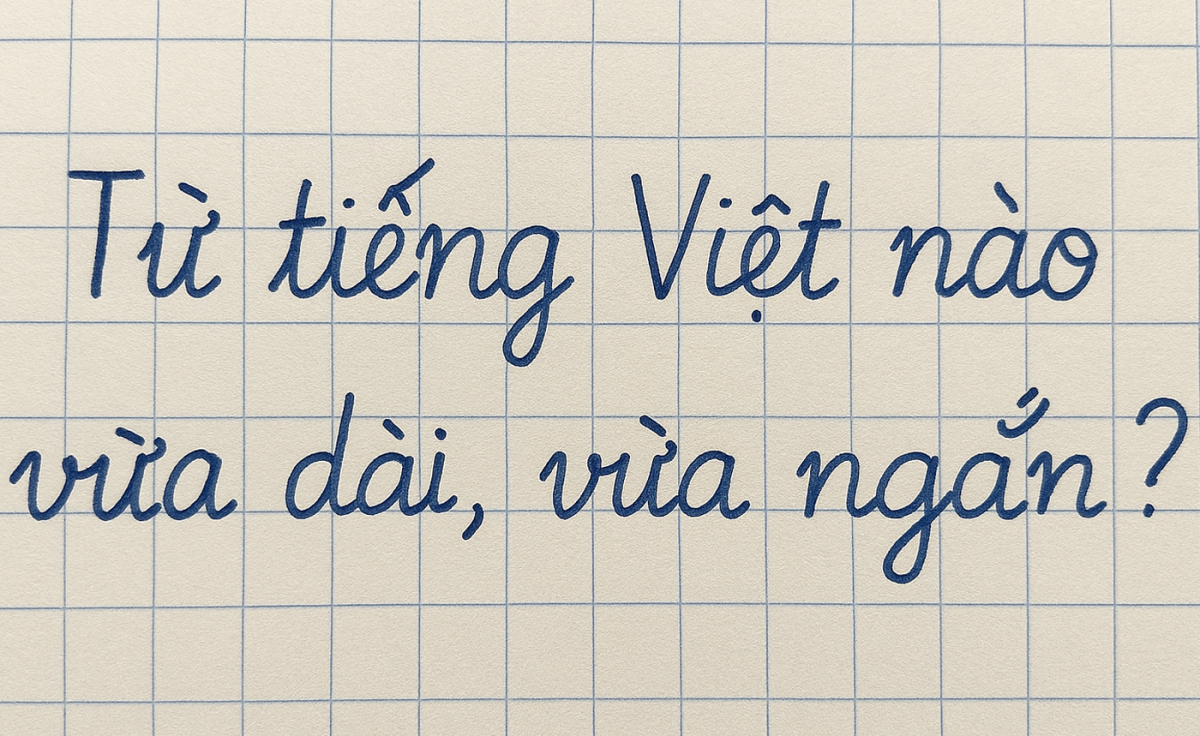 Từ tiếng Việt nào
vừa dài, vừa ngắn?